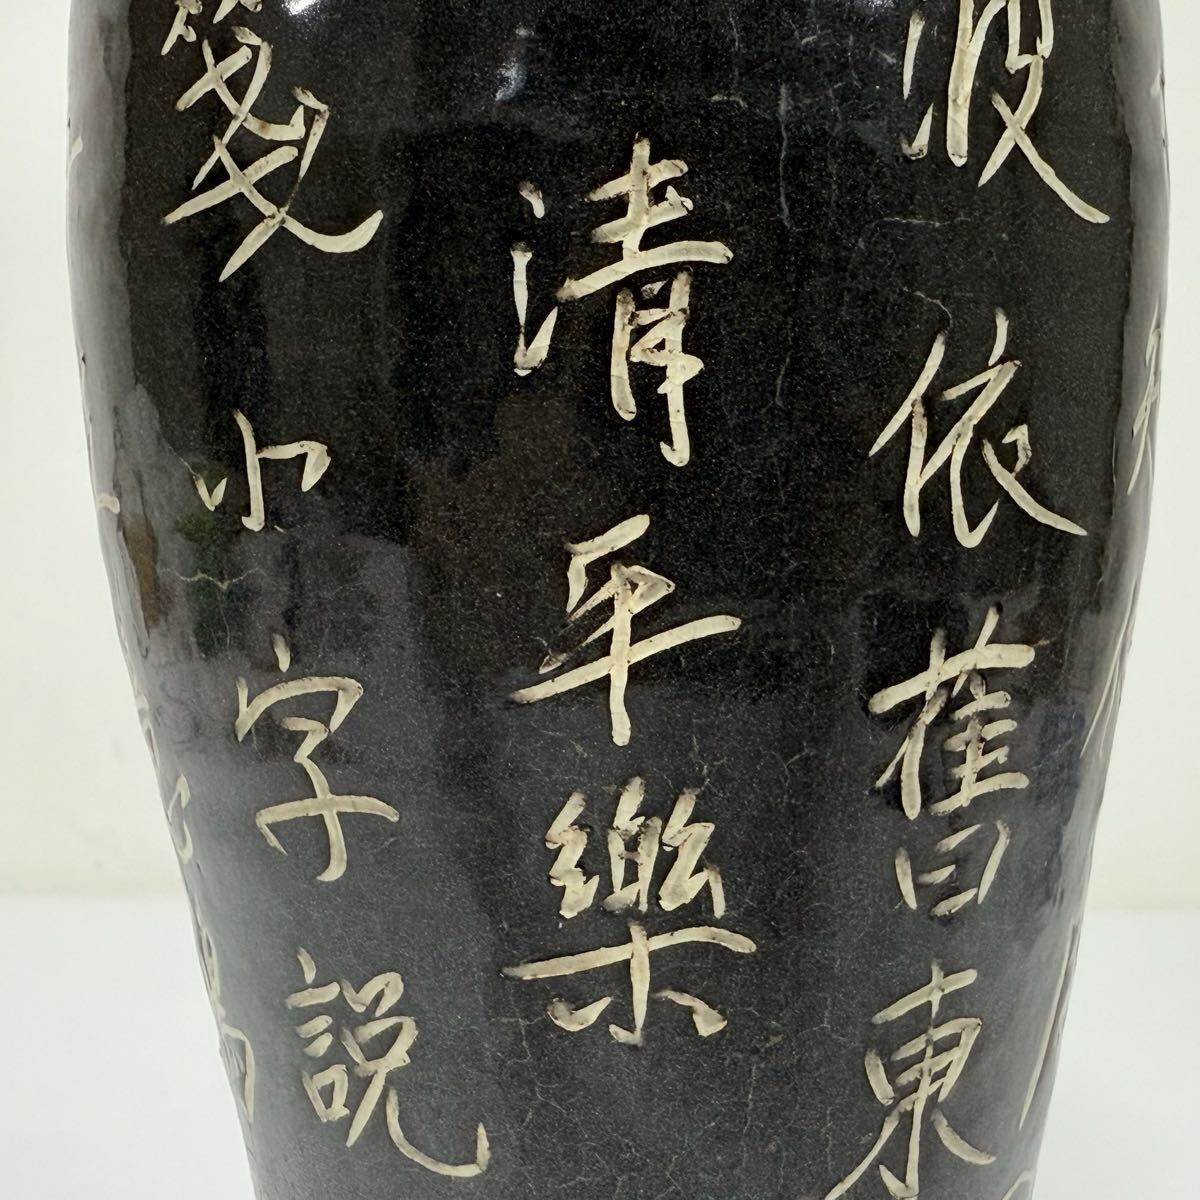 波依舊東
清平樂
箋小字說